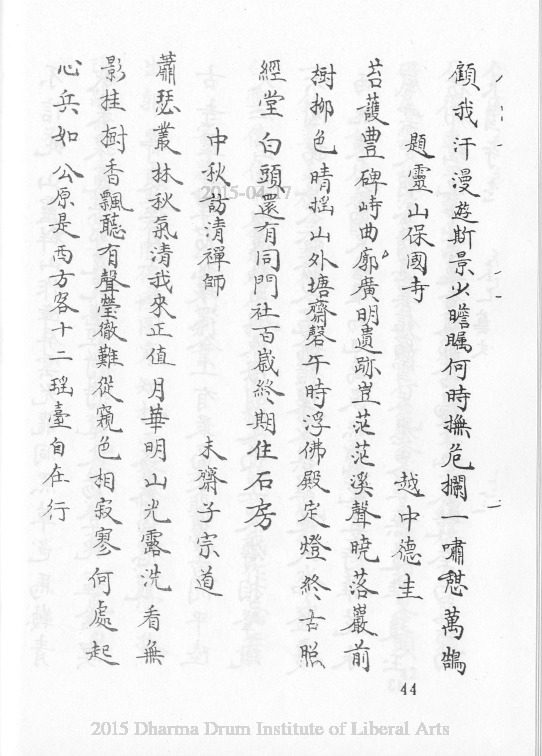 顧我汗漫遊斯景少瞻矚何時撫危欄一嘯憇萬鵠
題靈山保國寺
越中德圭
苔護豊碑峙曲廓廣明遺跡豈茫茫溪聲曉落巖前
樹柳色晴搖山外塘齋磬午時浮佛殿定燈終古照
經堂白頭還有同門社百歲終期住石房
中秋訪清禪師
末齋子宗道
蕭瑟叢林秋氣清我來正值月華明山光露洗看無
影桂樹香飄聽有聲瑩徹難從窺色相寂寥何處起
心兵如公原是西方客十二瑤臺自在行
44
2015-04-17
2015 Dharma Drum Institute of Liberal Arts